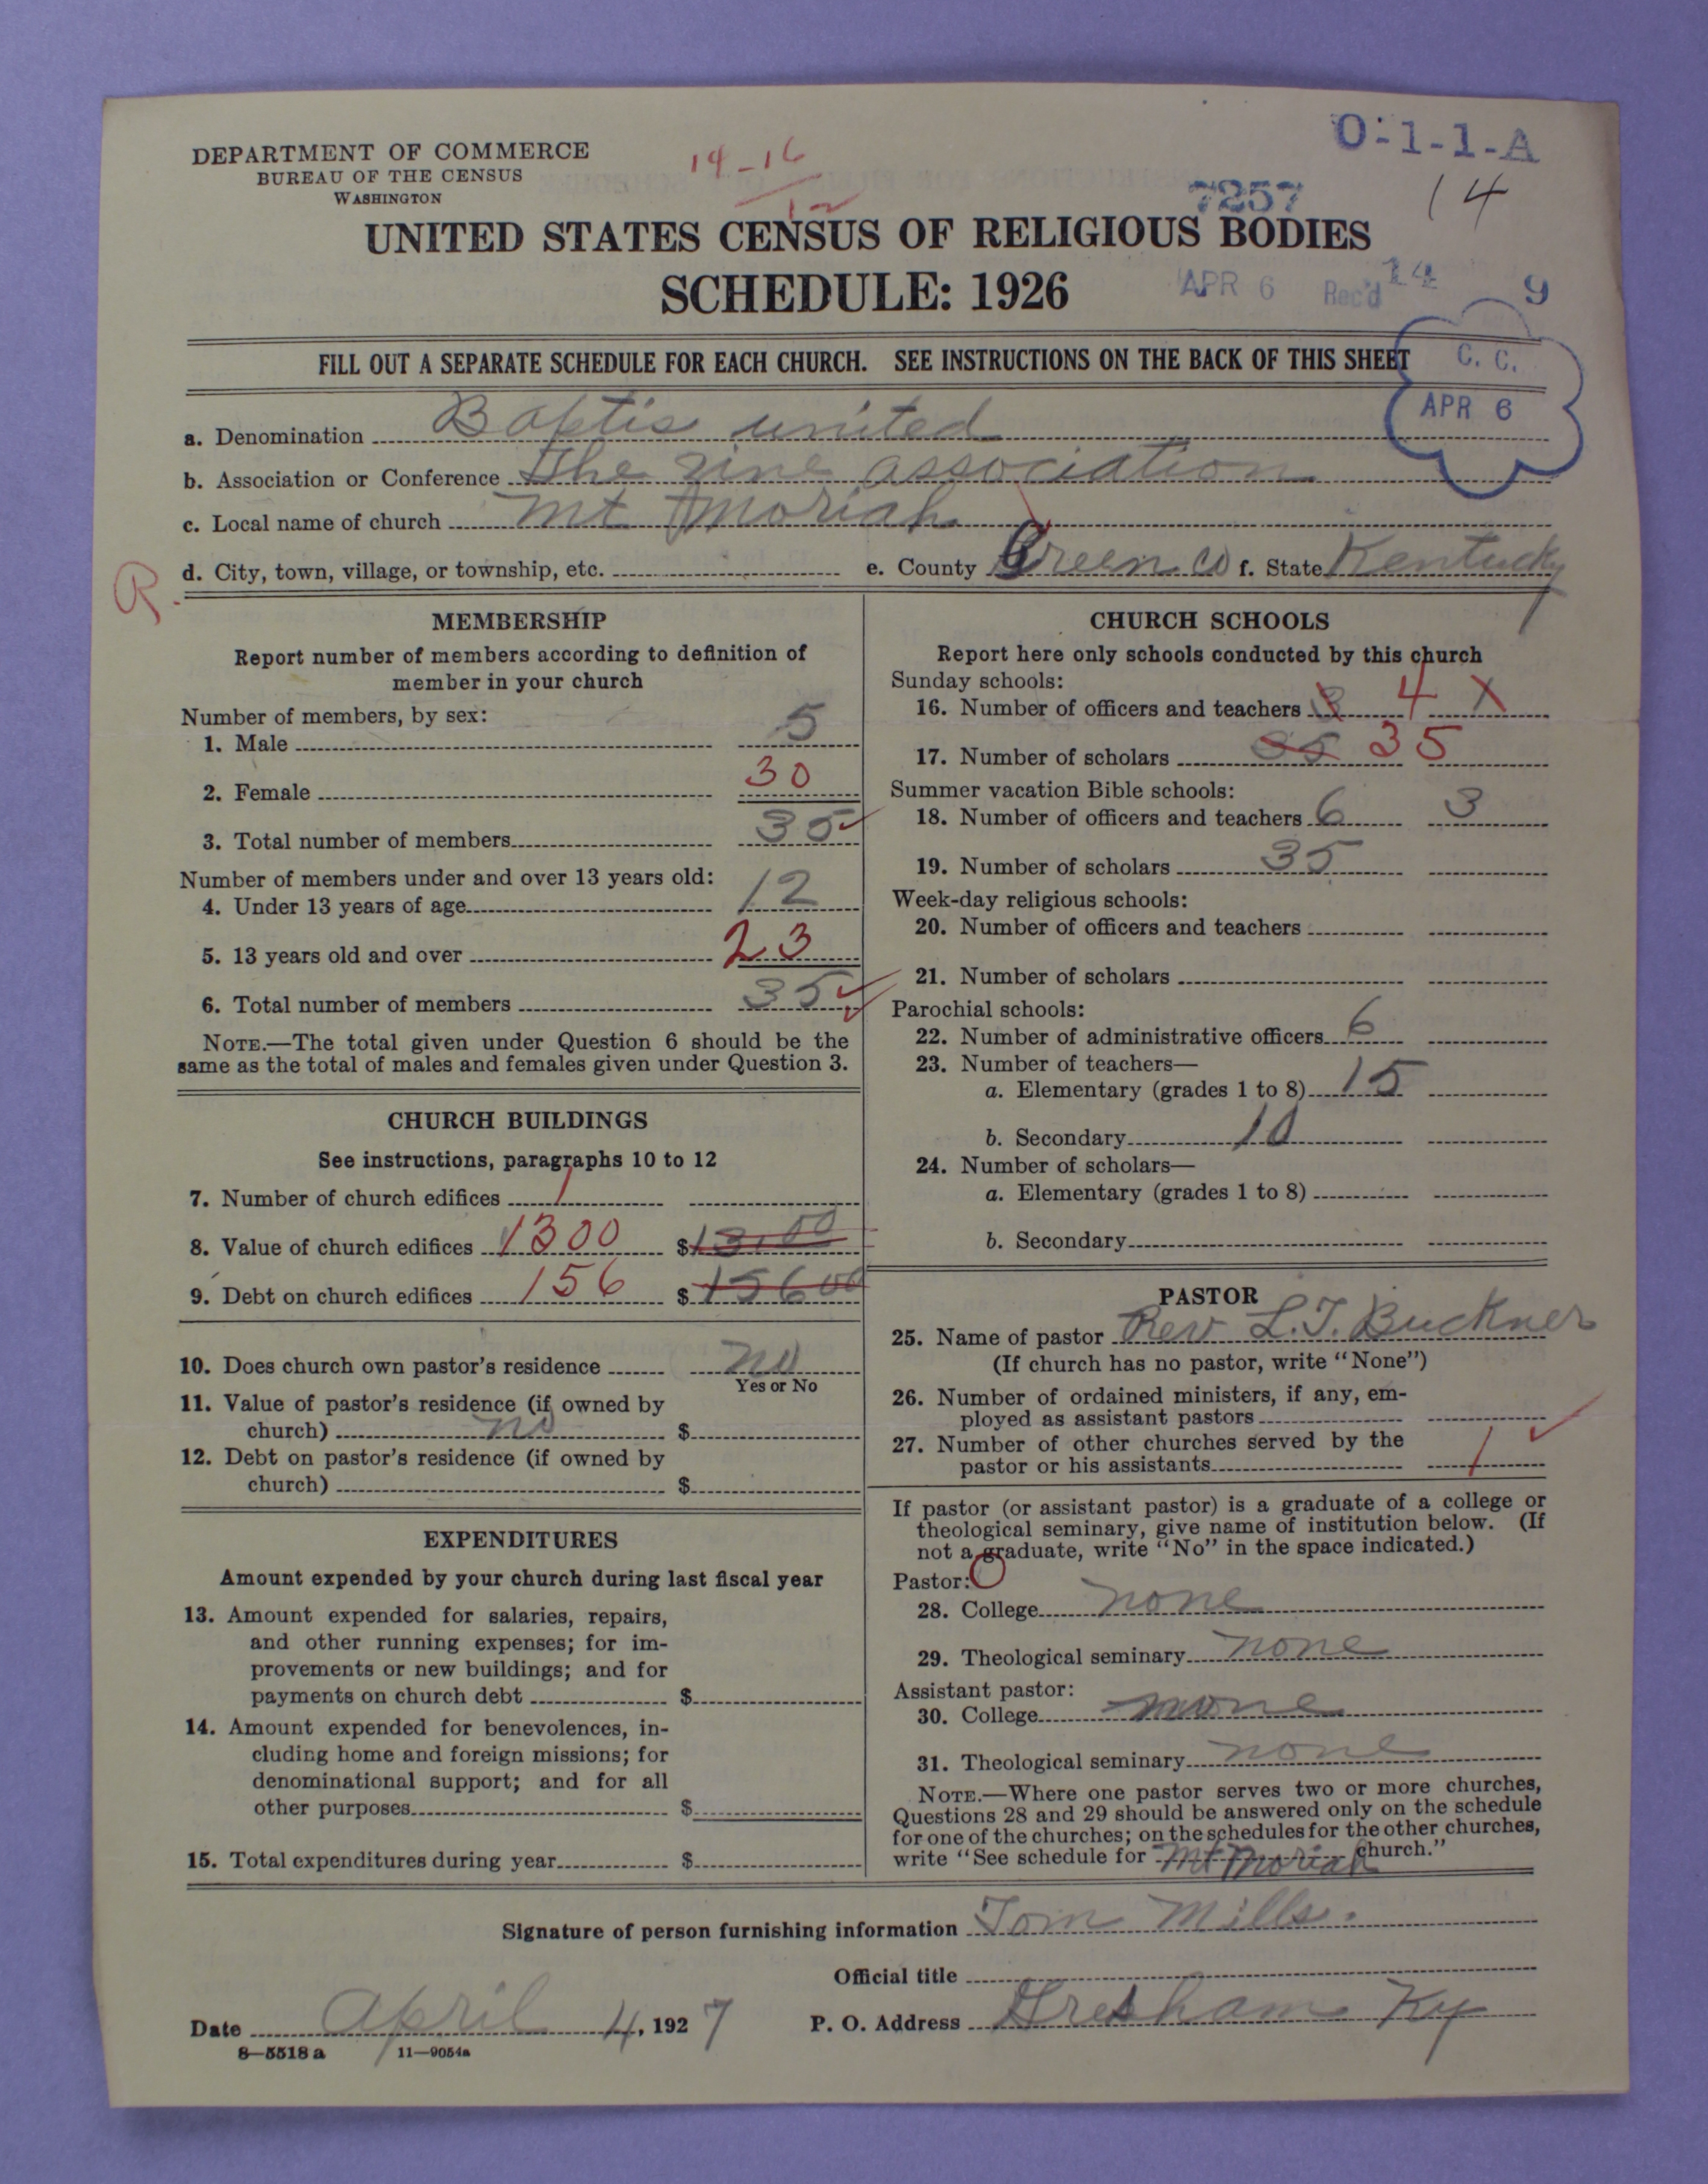 DEPARTMENT OF COMMERCE
BUREAU OF THE CENSUS
WASHINGTON
14-16
12
O-1-1-A
7257
14
UNITED STATES CENSUS OF RELIGIOUS BODIES
SCHEDULE: 1926
APR 6 Rec'd 14 9
FILL OUT A SEPARATE SCHEDULE FOR EACH CHURCH. SEE INSTRUCTIONS ON THE BACK OF THIS SHEET
C. C.
APR 6
a. Denomination Baptis united
b. Association or Conference The zine association
c. Local name of church Mt Moriah
R.
d. City, town, village, or township, etc. e. County Green Co f. State Kentucky
MEMBERSHIP
Report number of members according to definition of
member in your church
Number of members, by sex:
1. Male 5
2. Female 30
3. Total number of members 35
Number of members under and over 13 years old:
4. Under 13 years of age 12
5. 13 years old and over 23
6. Total number of members 35
NOTE.—The total given under Question 6 should be the
same as the total of males and females given under Question 3.
CHURCH BUILDINGS
See instructions, paragraphs 10 to 12
7. Number of church edifices 1
8. Value of church edifices 1300 $ 13.00
9. Debt on church edifices 156 $ 15600
10. Does church own pastor's residence no
Yes or No
11. Value of pastor's residence (if owned by
church) no $
12. Debt on pastor's residence (if owned by
church) $
EXPENDITURES
Amount expended by your church during last fiscal year
13. Amount expended for salaries, repairs,
and other running expenses; for im-
provements or new buildings; and for
payments on church debt $
14. Amount expended for benevolences, in-
cluding home and foreign missions; for
denominational support; and for all
other purposes $
15. Total expenditures during year $
CHURCH SCHOOLS
Report here only schools conducted by this church
Sunday schools:
16. Number of officers and teachers 3 4 X
17. Number of scholars 35 35
Summer vacation Bible schools:
18. Number of officers and teachers 6 3
19. Number of scholars 35
Week-day religious schools:
20. Number of officers and teachers
21. Number of scholars
Parochial schools:
22. Number of administrative officers 6
23. Number of teachers—
a. Elementary (grades 1 to 8) 15
b. Secondary 10
24. Number of scholars—
a. Elementary (grades 1 to 8)
b. Secondary
PASTOR
25. Name of pastor Rev L.T. Buckner
(If church has no pastor, write "None")
26. Number of ordained ministers, if any, em-
ployed as assistant pastors
27. Number of other churches served by the
pastor or his assistants 1
If pastor (or assistant pastor) is a graduate of a college or
theological seminary, give name of institution below. (If
not a graduate, write "No" in the space indicated.)
Pastor:
28. College none
29. Theological seminary none
Assistant pastor:
30. College none
31. Theological seminary none
NOTE.—Where one pastor serves two or more churches,
Questions 28 and 29 should be answered only on the schedule
for one of the churches; on the schedules for the other churches,
write "See schedule for Mt Moriah church."
Signature of person furnishing information Tom Mills.
Official title
Date April 4, 1927 P. O. Address Gresham Ky
8—5518 a 11—9054a